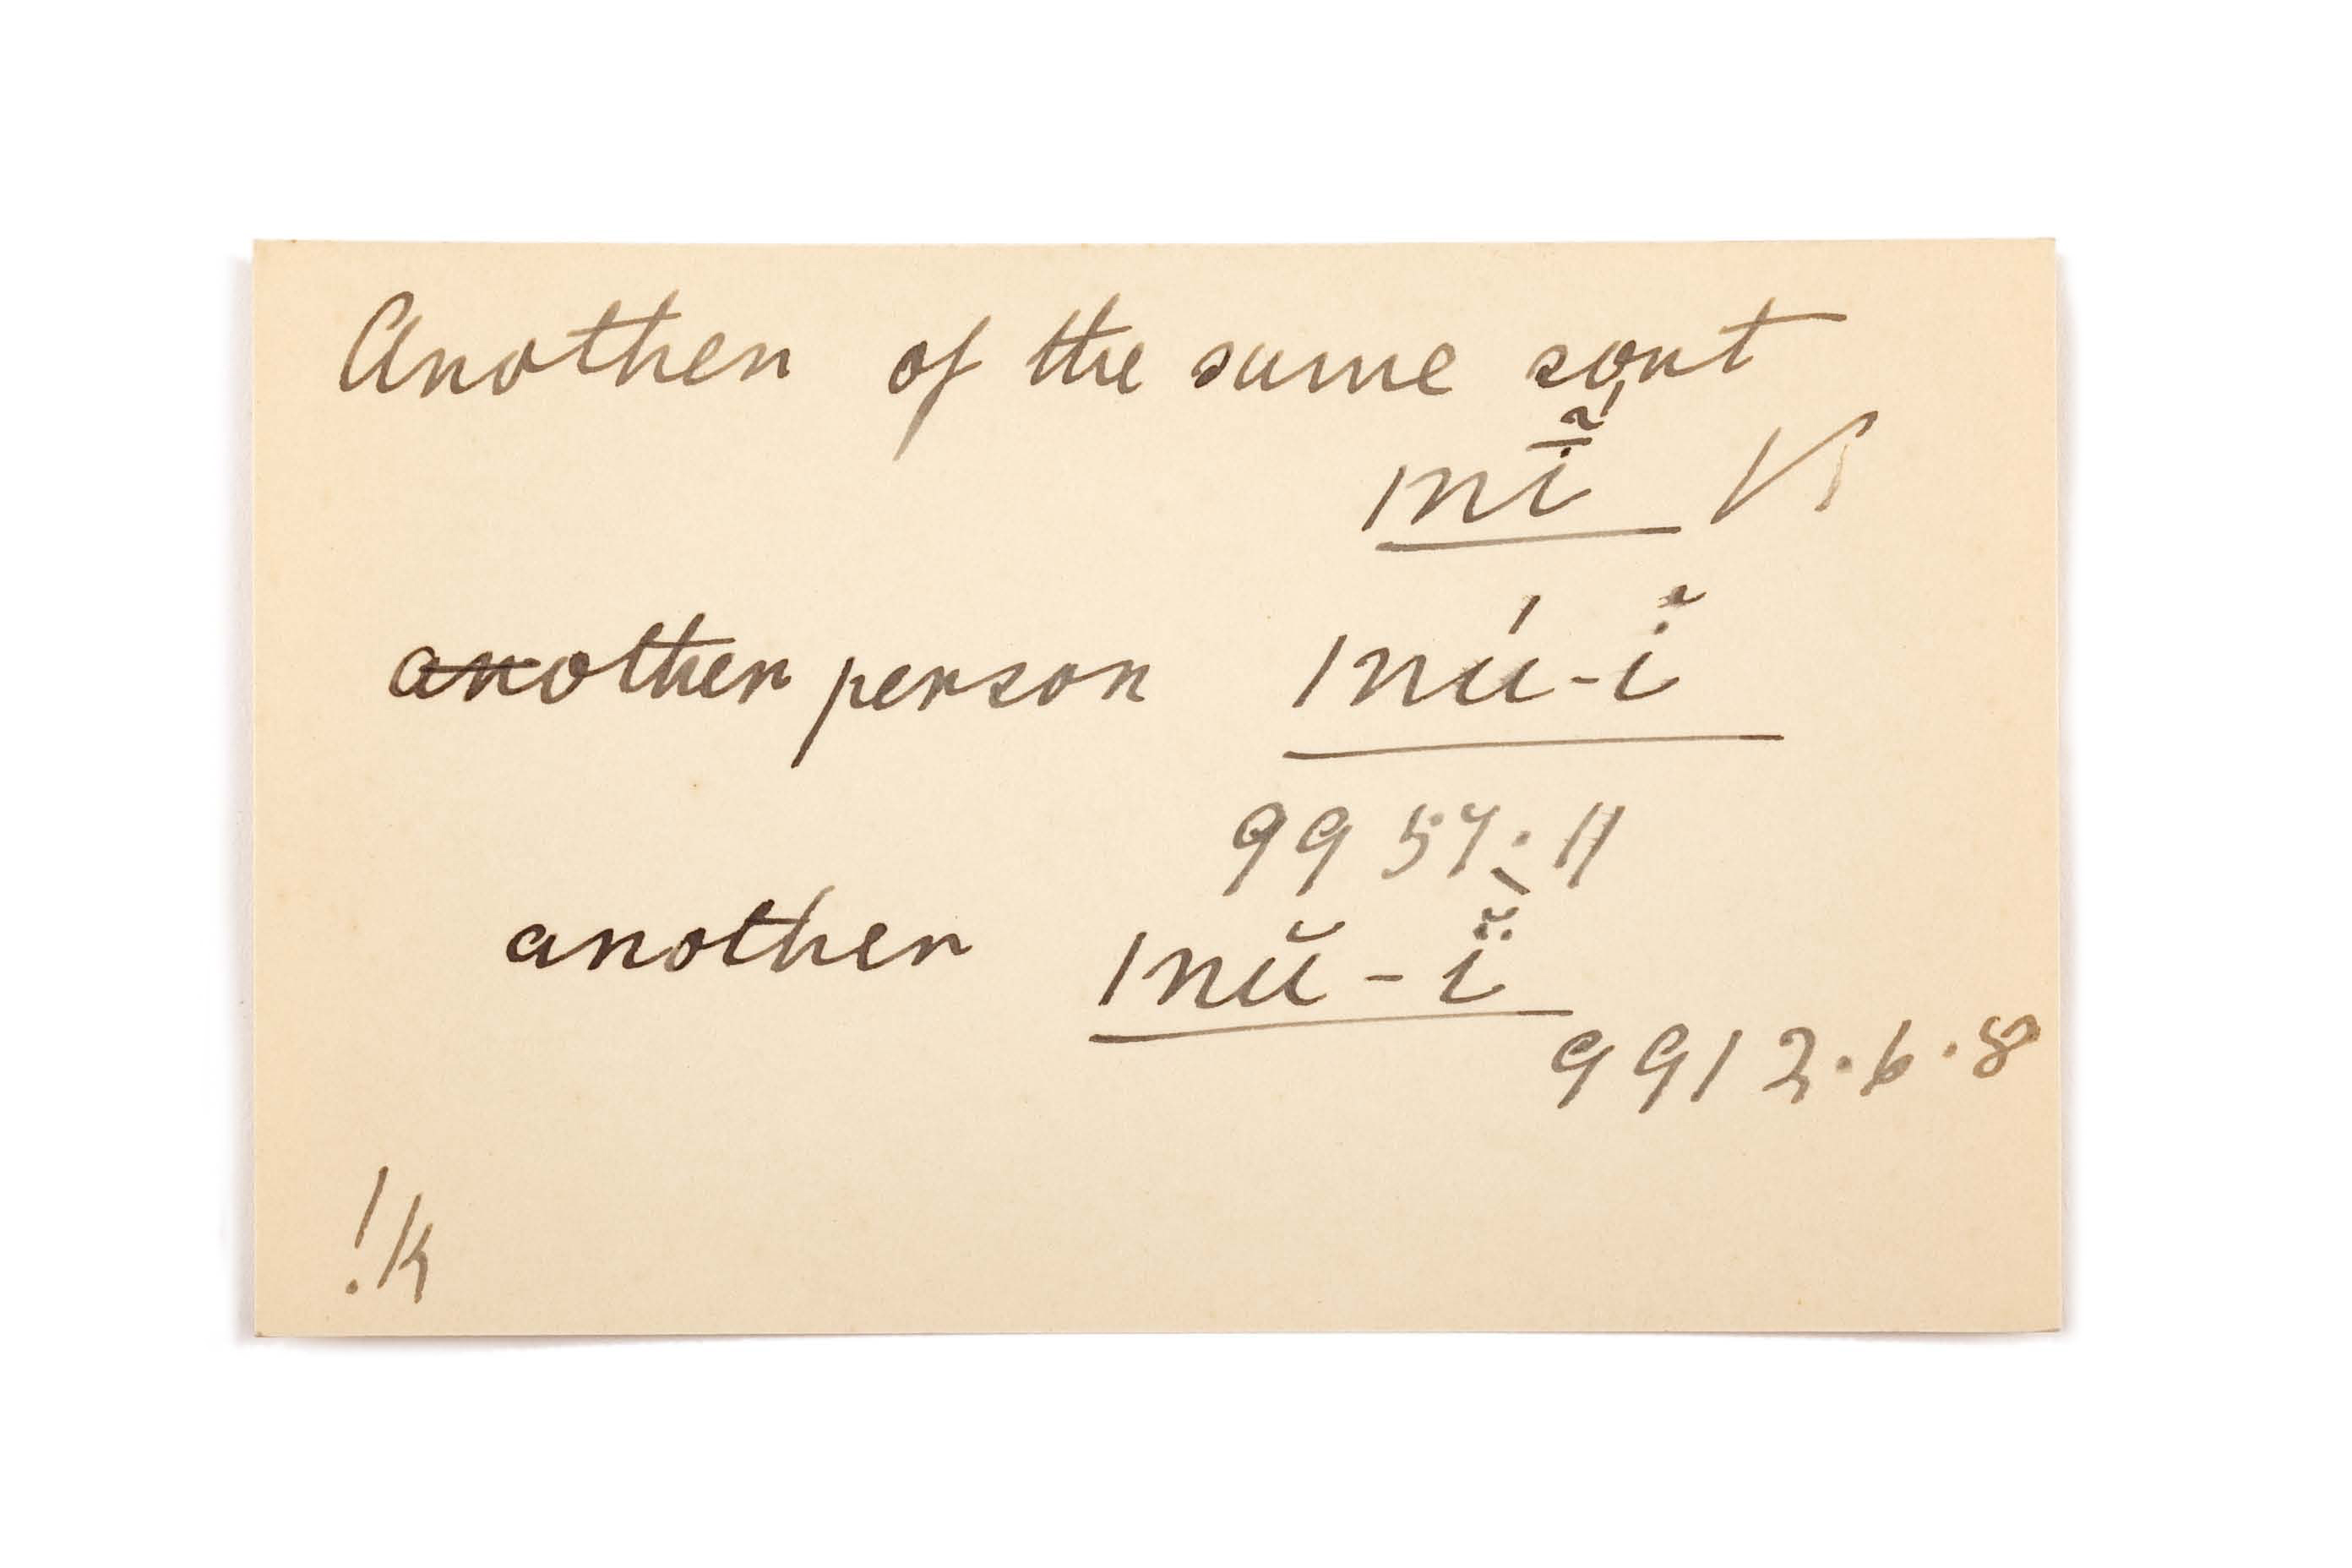 Another of the same sort
|nī̆́ V
another person |nú-ĭ
9957·11
another |nŭ-ĭ̈
9912·6·8
!k